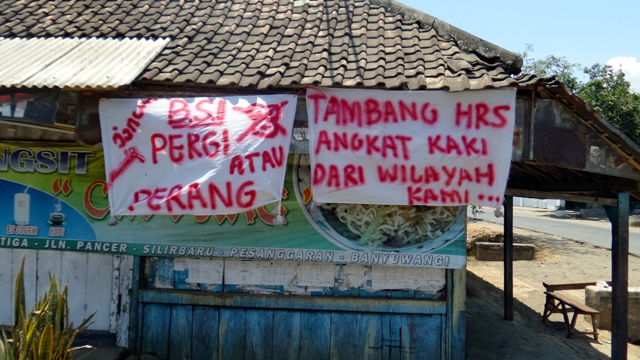 B.S.I
PERGI
ATAU
PERANG
TAMBANG HRS
ANGKAT KAKI
DARI WILAYAH
KAMI...
NGSIT
ES KOPI
TIGA - JLN. PANCER - SILIRBARU - PESANGGARAN - BANYUWANGI